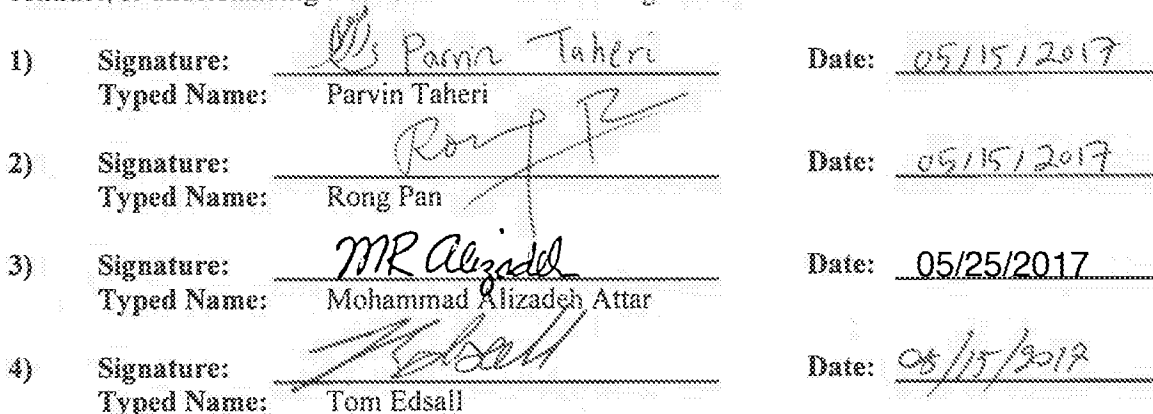 1) Signature: Parvin Taheri Date: 05/15/2017
Typed Name: Parvin Taheri
2) Signature: Rong P Date: 05/15/2017
Typed Name: Rong Pan
3) Signature: MR Alizadeh Date: 05/25/2017
Typed Name: Mohammad Alizadeh Attar
4) Signature: Date:
Typed Name: Tom Edsall